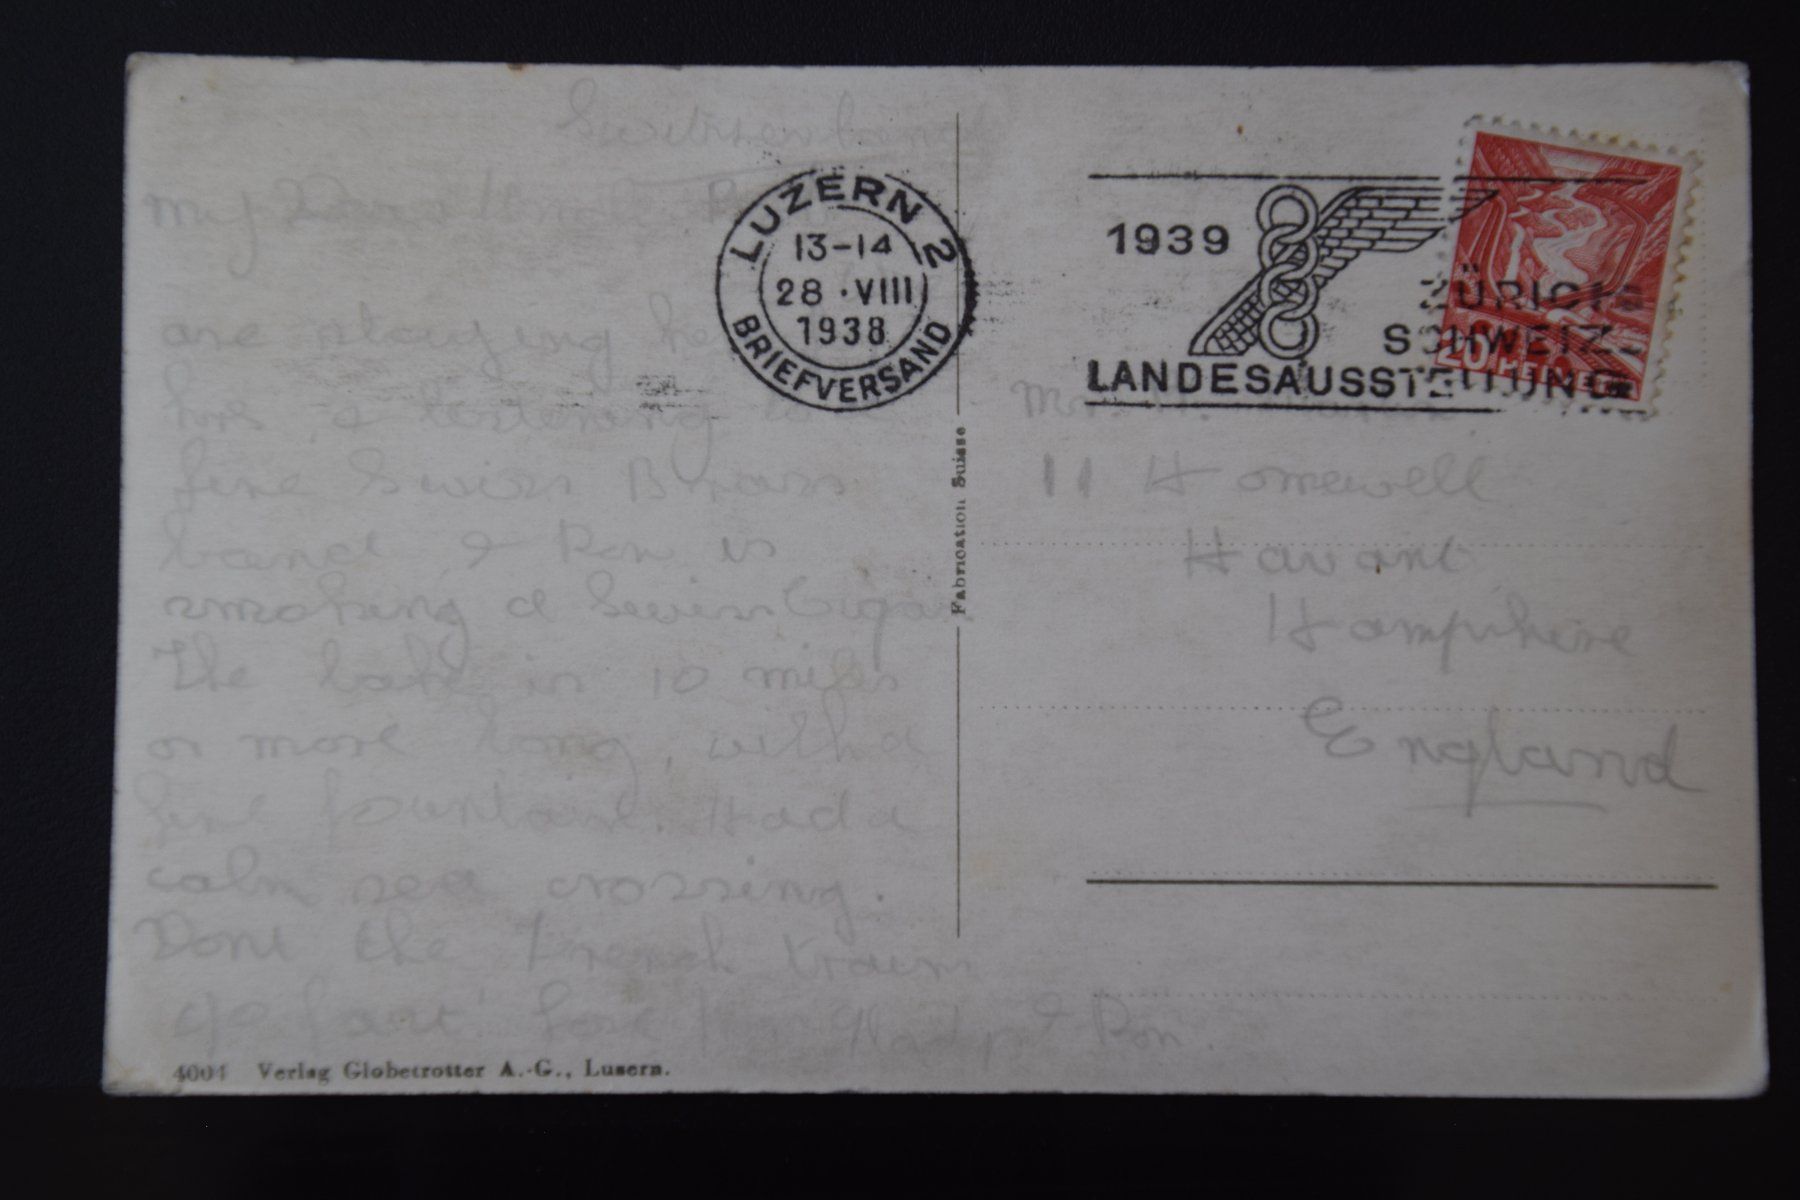 Switzerland
My Dear
LUZERN 2
13-14
28·VIII
1938
BRIEFVERSAND
1939
ZÜRICH
SCHWEIZ.
LANDESAUSSTELLUNG
20 HELVETIA
are staying
here, & listening to
fine Swiss Brass
band, & Ron is
smoking a Swiss Cigar.
The Lake is 10 miles
or more long, with a
fine fountain. Had a
calm sea crossing.
Dont the French trains
go fast! Love from Gladys & Ron.
Mr.
11 Homewell
Havant
Hampshire
England
Fabrication Suisse
4004 Verlag Globetrotter A.-G., Luzern.